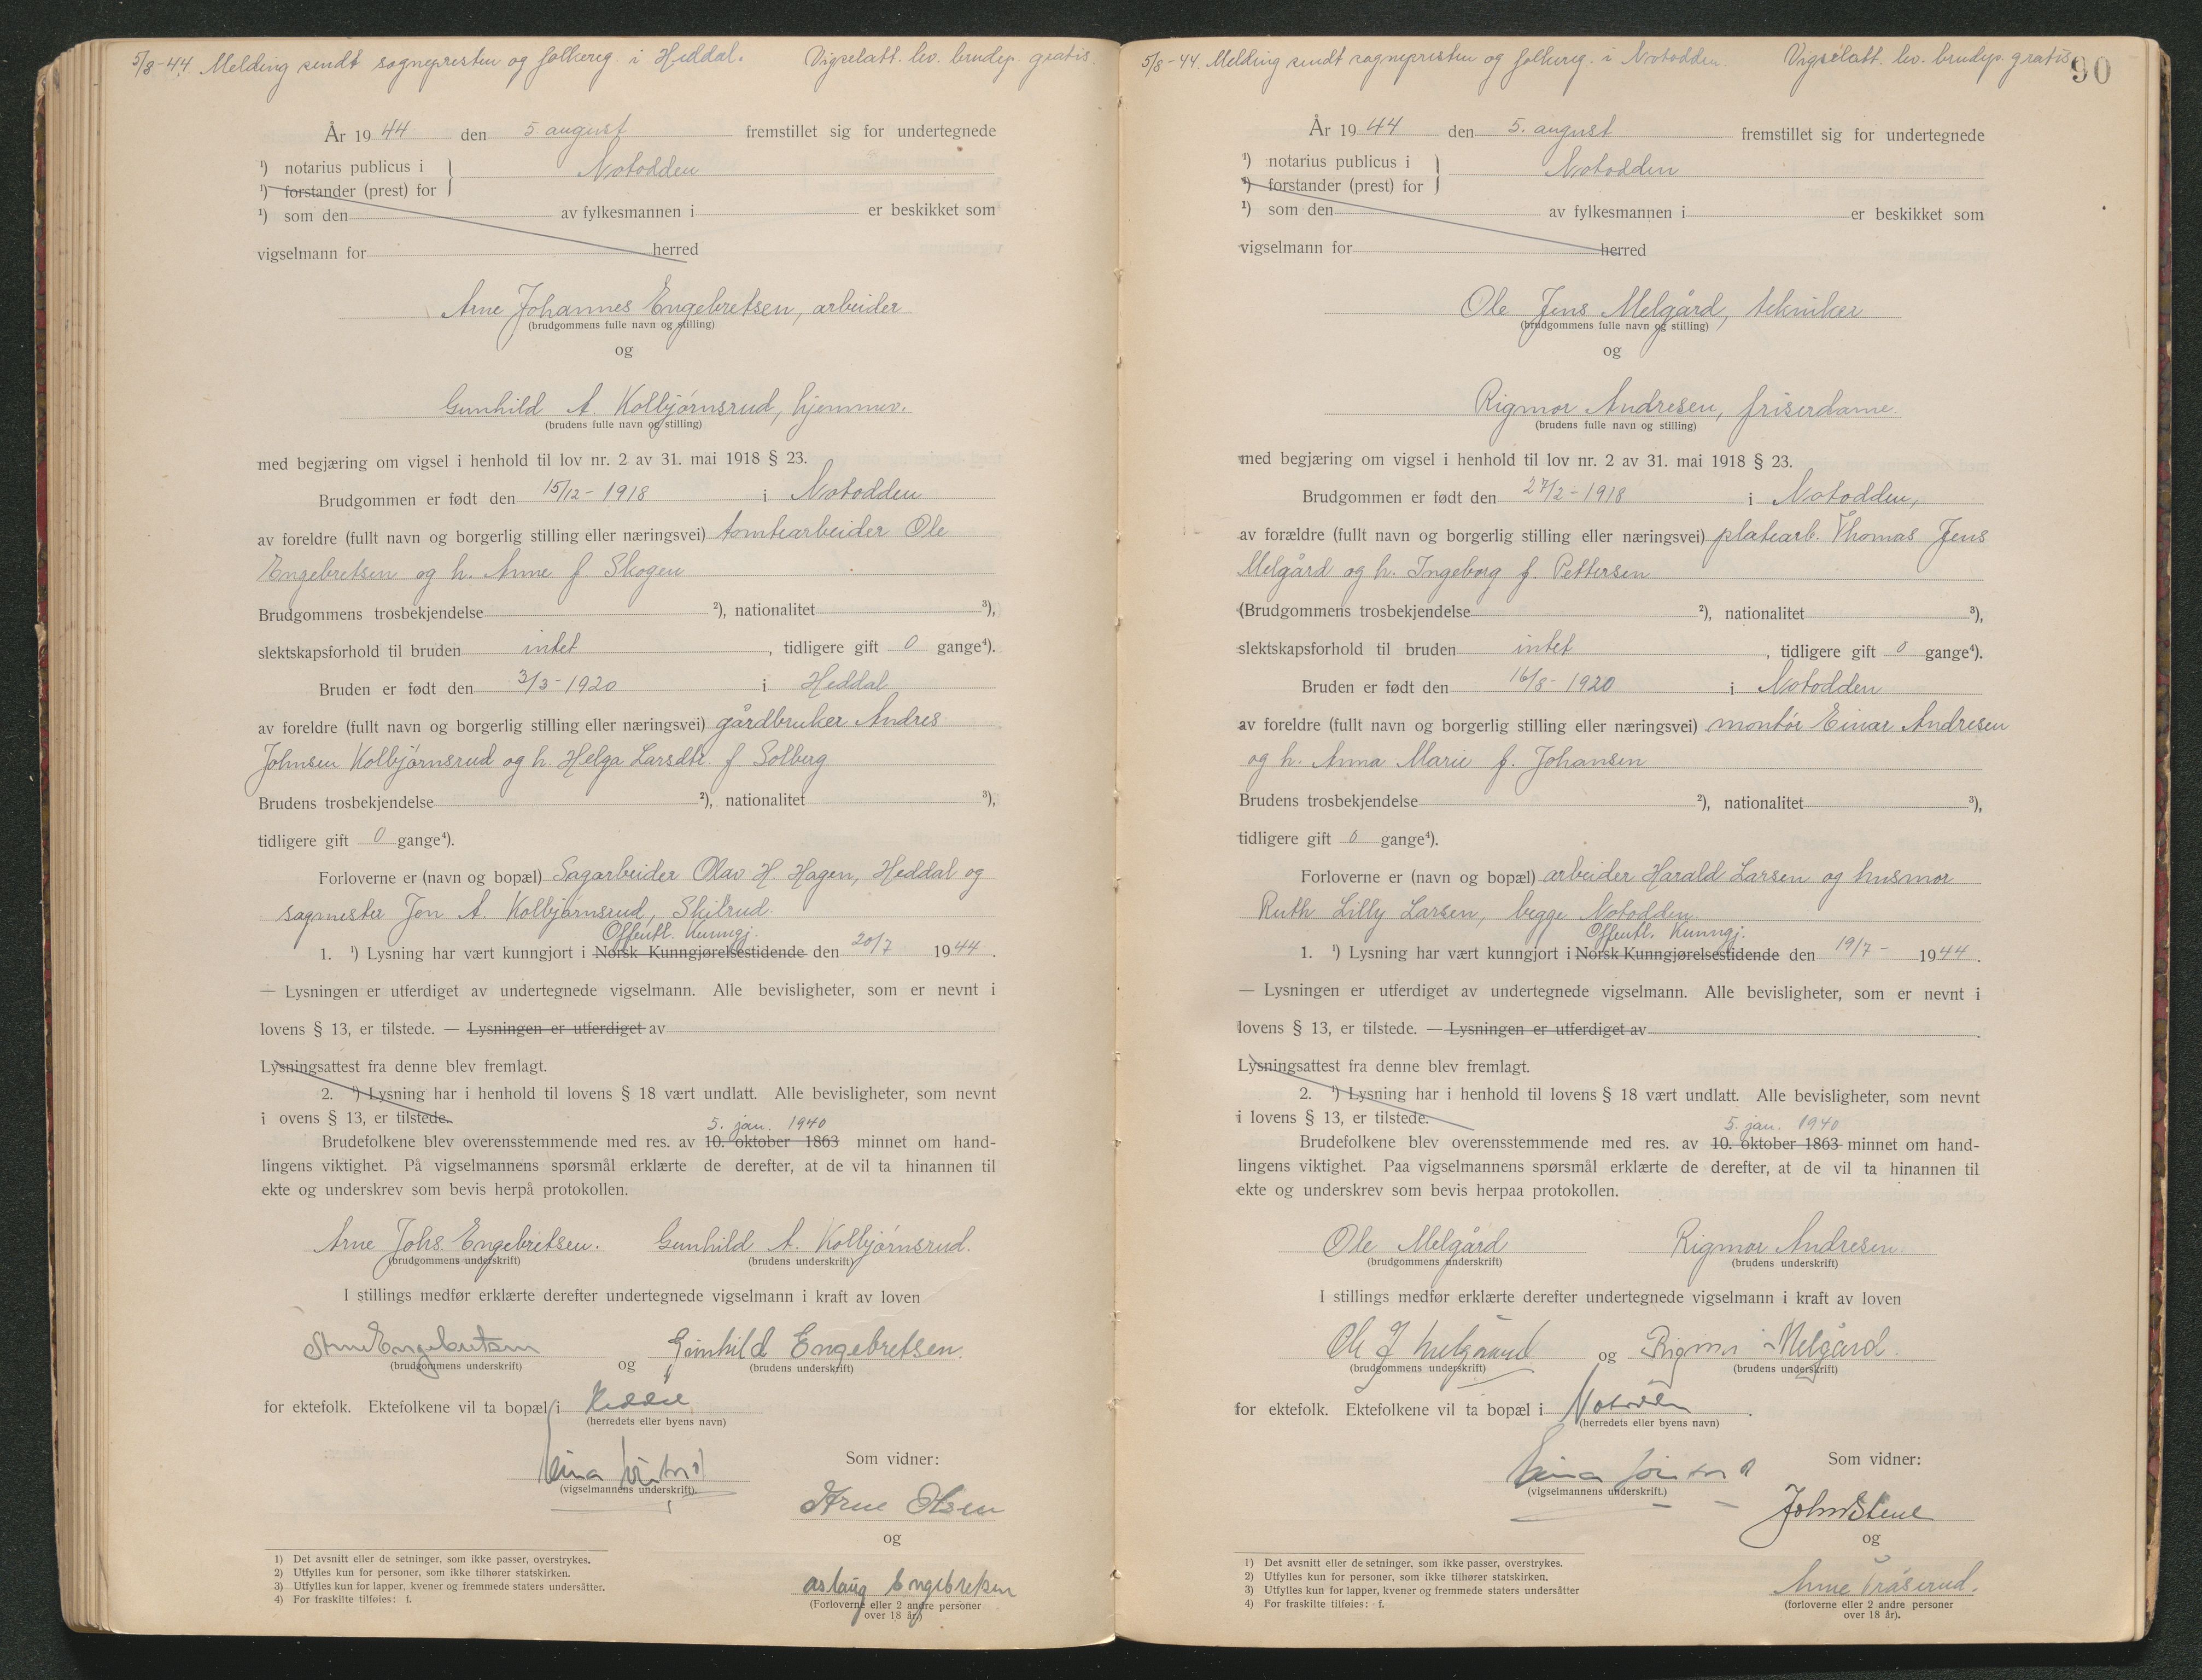 5/8-44. Melding sendt sognepresten og folkereg. i Heddal. Vigselatt. lev. brudep. gratis.
År 1944 den 5 august fremstillet sig for undertegnede
¹) notarius publicus i } Notodden
¹) forstander (prest) for
¹) som den av fylkesmannen i er beskikket som
vigselmann for herred
Arne Johannes Engebretsen, arbeider
(brudgommens fulle navn og stilling)
og
Gunhild A. Kolbjørnsrud, hjemmev.
(brudens fulle navn og stilling)
med begjæring om vigsel i henhold til lov nr. 2 av 31. mai 1918 § 23.
Brudgommen er født den 15/12-1918 i Notodden
av foreldre (fullt navn og borgerlig stilling eller næringsvei) tomtearbeider Ole
Engebretsen og h. Anne f Skogen
Brudgommens trosbekjendelse ²), nationalitet ³),
slektskapsforhold til bruden intet, tidligere gift 0 gange⁴).
Bruden er født den 3/3-1920 i Heddal
av foreldre (fullt navn og borgerlig stilling eller næringsvei) gårdbruker Andres
Johnsen Kolbjørnsrud og h. Helga Larsdtr. f Solberg
Brudens trosbekjendelse ²), nationalitet ³),
tidligere gift 0 gange⁴).
Forloverne er (navn og bopæl) Sagarbeider Olav H. Hagen, Heddal og
sagmester Jon A. Kolbjørnsrud, Skilrud.
Offentl. Kunngj.
1. ¹) Lysning har vært kunngjort i Norsk Kunngjørelsestidende den 20/7 1944.
— Lysningen er utferdiget av undertegnede vigselmann. Alle bevisligheter, som er nevnt i
lovens § 13, er tilstede. — Lysningen er utferdiget av
Lysningsattest fra denne blev fremlagt.
2. ¹) Lysning har i henhold til lovens § 18 vært undlatt. Alle bevisligheter, som nevnt
i ovens § 13, er tilstede.
5. jan. 1940
Brudefolkene blev overensstemmende med res. av 10. oktober 1863 minnet om hand-
lingens viktighet. På vigselmannens spørsmål erklærte de derefter, at de vil ta hinannen til
ekte og underskrev som bevis herpå protokollen.
Arne Johs. Engebretsen. Gunhild A. Kolbjørnsrud.
(brudgommens underskrift) (brudens underskrift)
I stillings medfør erklærte derefter undertegnede vigselmann i kraft av loven
Arne Engebretsen og Gunhild Engebretsen.
(brudgommens underskrift) (brudens underskrift)
for ektefolk. Ektefolkene vil ta bopæl i Heddal
(herredets eller byens navn)
Som vidner:
(vigselmannens underskrift).
Arne Olsen
og
Aslaug Engebretsen
(Forloverne eller 2 andre personer
over 18 år)
1) Det avsnitt eller de setninger, som ikke passer, overstrykes.
2) Utfylles kun for personer, som ikke tilhører statskirken.
3) Utfylles kun for lapper, kvener og fremmede staters undersåtter.
4) For fraskilte tilføies: f.
5/8-44. Melding sendt sognepresten og folkereg. i Notodden. Vigselatt. lev. brudep. gratis
90
År 1944 den 5. august fremstillet sig for undertegnede
¹) notarius publicus i } Notodden
¹) forstander (prest) for
¹) som den av fylkesmannen i er beskikket som
vigselmann for herred
Ole Jens Melgård, tekniker
(brudgommens fulle navn og stilling)
og
Rigmor Andresen, friserdame.
(brudens fulle navn og stilling)
med begjæring om vigsel i henhold til lov nr. 2 av 31. mai 1918 § 23.
Brudgommen er født den 27/2-1918 i Notodden,
av forældre (fullt navn og borgerlig stilling eller næringsvei) platearb. Thomas Jens
Melgård og h. Ingeborg f. Pettersen
(Brudgommens trosbekjendelse ²), nationalitet ³),
slektskapsforhold til bruden intet, tidligere gift 0 gange⁴).
Bruden er født den 16/8-1920 i Notodden
av foreldre (fullt navn og borgerlig stilling eller næringsvei) montør Einar Andresen
og h. Anna Marie f. Johansen
Brudens trosbekjendelse ²), nationalitet ³),
tidligere gift 0 gange⁴).
Forloverne er (navn og bopæl) arbeider Harald Larsen og husmor
Ruth Lilly Larsen, begge Notodden.
Offentl. Kunngj.
1. ¹) Lysning har vært kunngjort i Norsk Kunngjørelsestidende den 19/7- 1944.
— Lysningen er utferdiget av undertegnede vigselmann. Alle bevisligheter, som er nevnt i
lovens § 13, er tilstede. — Lysningen er utferdiget av .
Lysningsattest fra denne blev fremlagt.
2. ¹) Lysning har i henhold til lovens § 18 vært undlatt. Alle bevisligheter, som nevnt
i lovens § 13, er tilstede.
5. jan. 1940
Brudefolkene blev overensstemmende med res. av 10. oktober 1863 minnet om hand-
lingens viktighet. Paa vigselmannens spørsmål erklærte de derefter, at de vil ta hinannen til
ekte og underskrev som bevis herpaa protokollen.
Ole Melgård Rigmor Andresen
(brudgommens underskrift) (brudens underskrift)
I stillings medfør erklærte derefter undertegnede vigselmann i kraft av loven
Ole J Melgaard og Rigmor Melgård.
(brudgommens underskrift) (brudens underskrift)
for ektefolk. Ektefolkene vil ta bopæl i Notodden.
(herredets eller byens navn)
Som vidner:
(vigselmannens underskrift.)
John Stene
og
Anne Tråserud.
(forloverne eller 2 andre personer
over 18 år).
1) Det avsnitt eller de setninger, som ikke passer, overstrykes.
2) Utfylles kun for personer, som ikke tilhører statskirken.
3) Utfylles kun for lapper, kvener og fremmede staters undersåtter
4) For fraskilte tilføies: f.